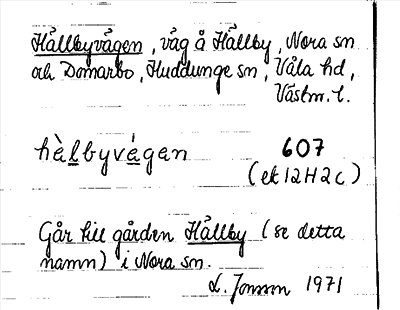 Hållbyvägen, väg å Hållby, Nora sn
och Domarbo, Huddunge sn, Våla hd,
Västm. l.
hàlbyvégen 607
(ek 12H2c)
Går till gården Hållby (se detta
namn) i Nora sn.
L. Jonson 1971